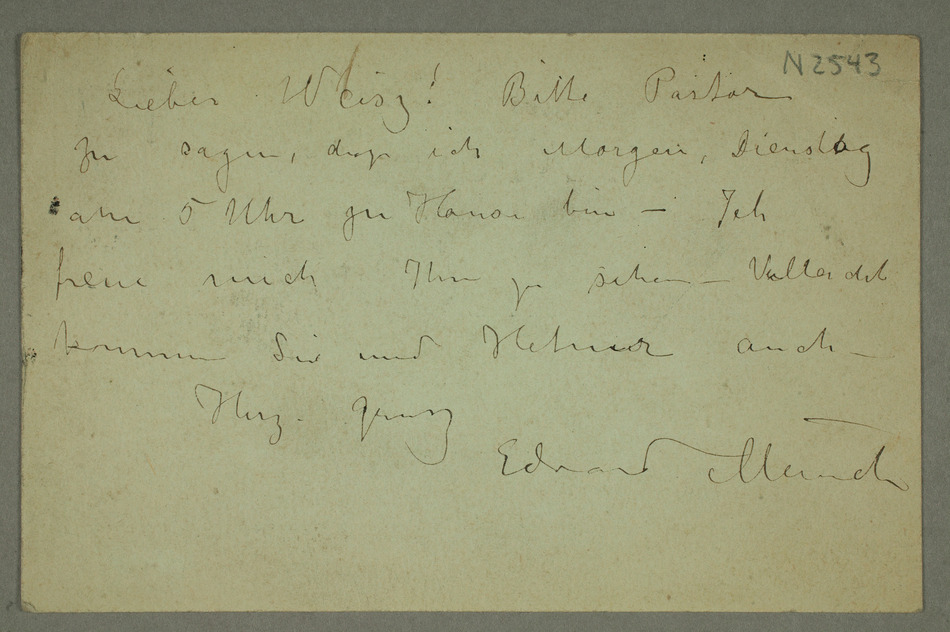 N 2543
Lieber Weisz! Bitte Pastor
zu sagen, dasz ich Morgen, Dienstag
um 5 Uhr zu Hause bin – Ich
freue mich Ihm zu sehen – Velleicht
kommen Sie und auch –
Herz. grusz
Edvard Munch